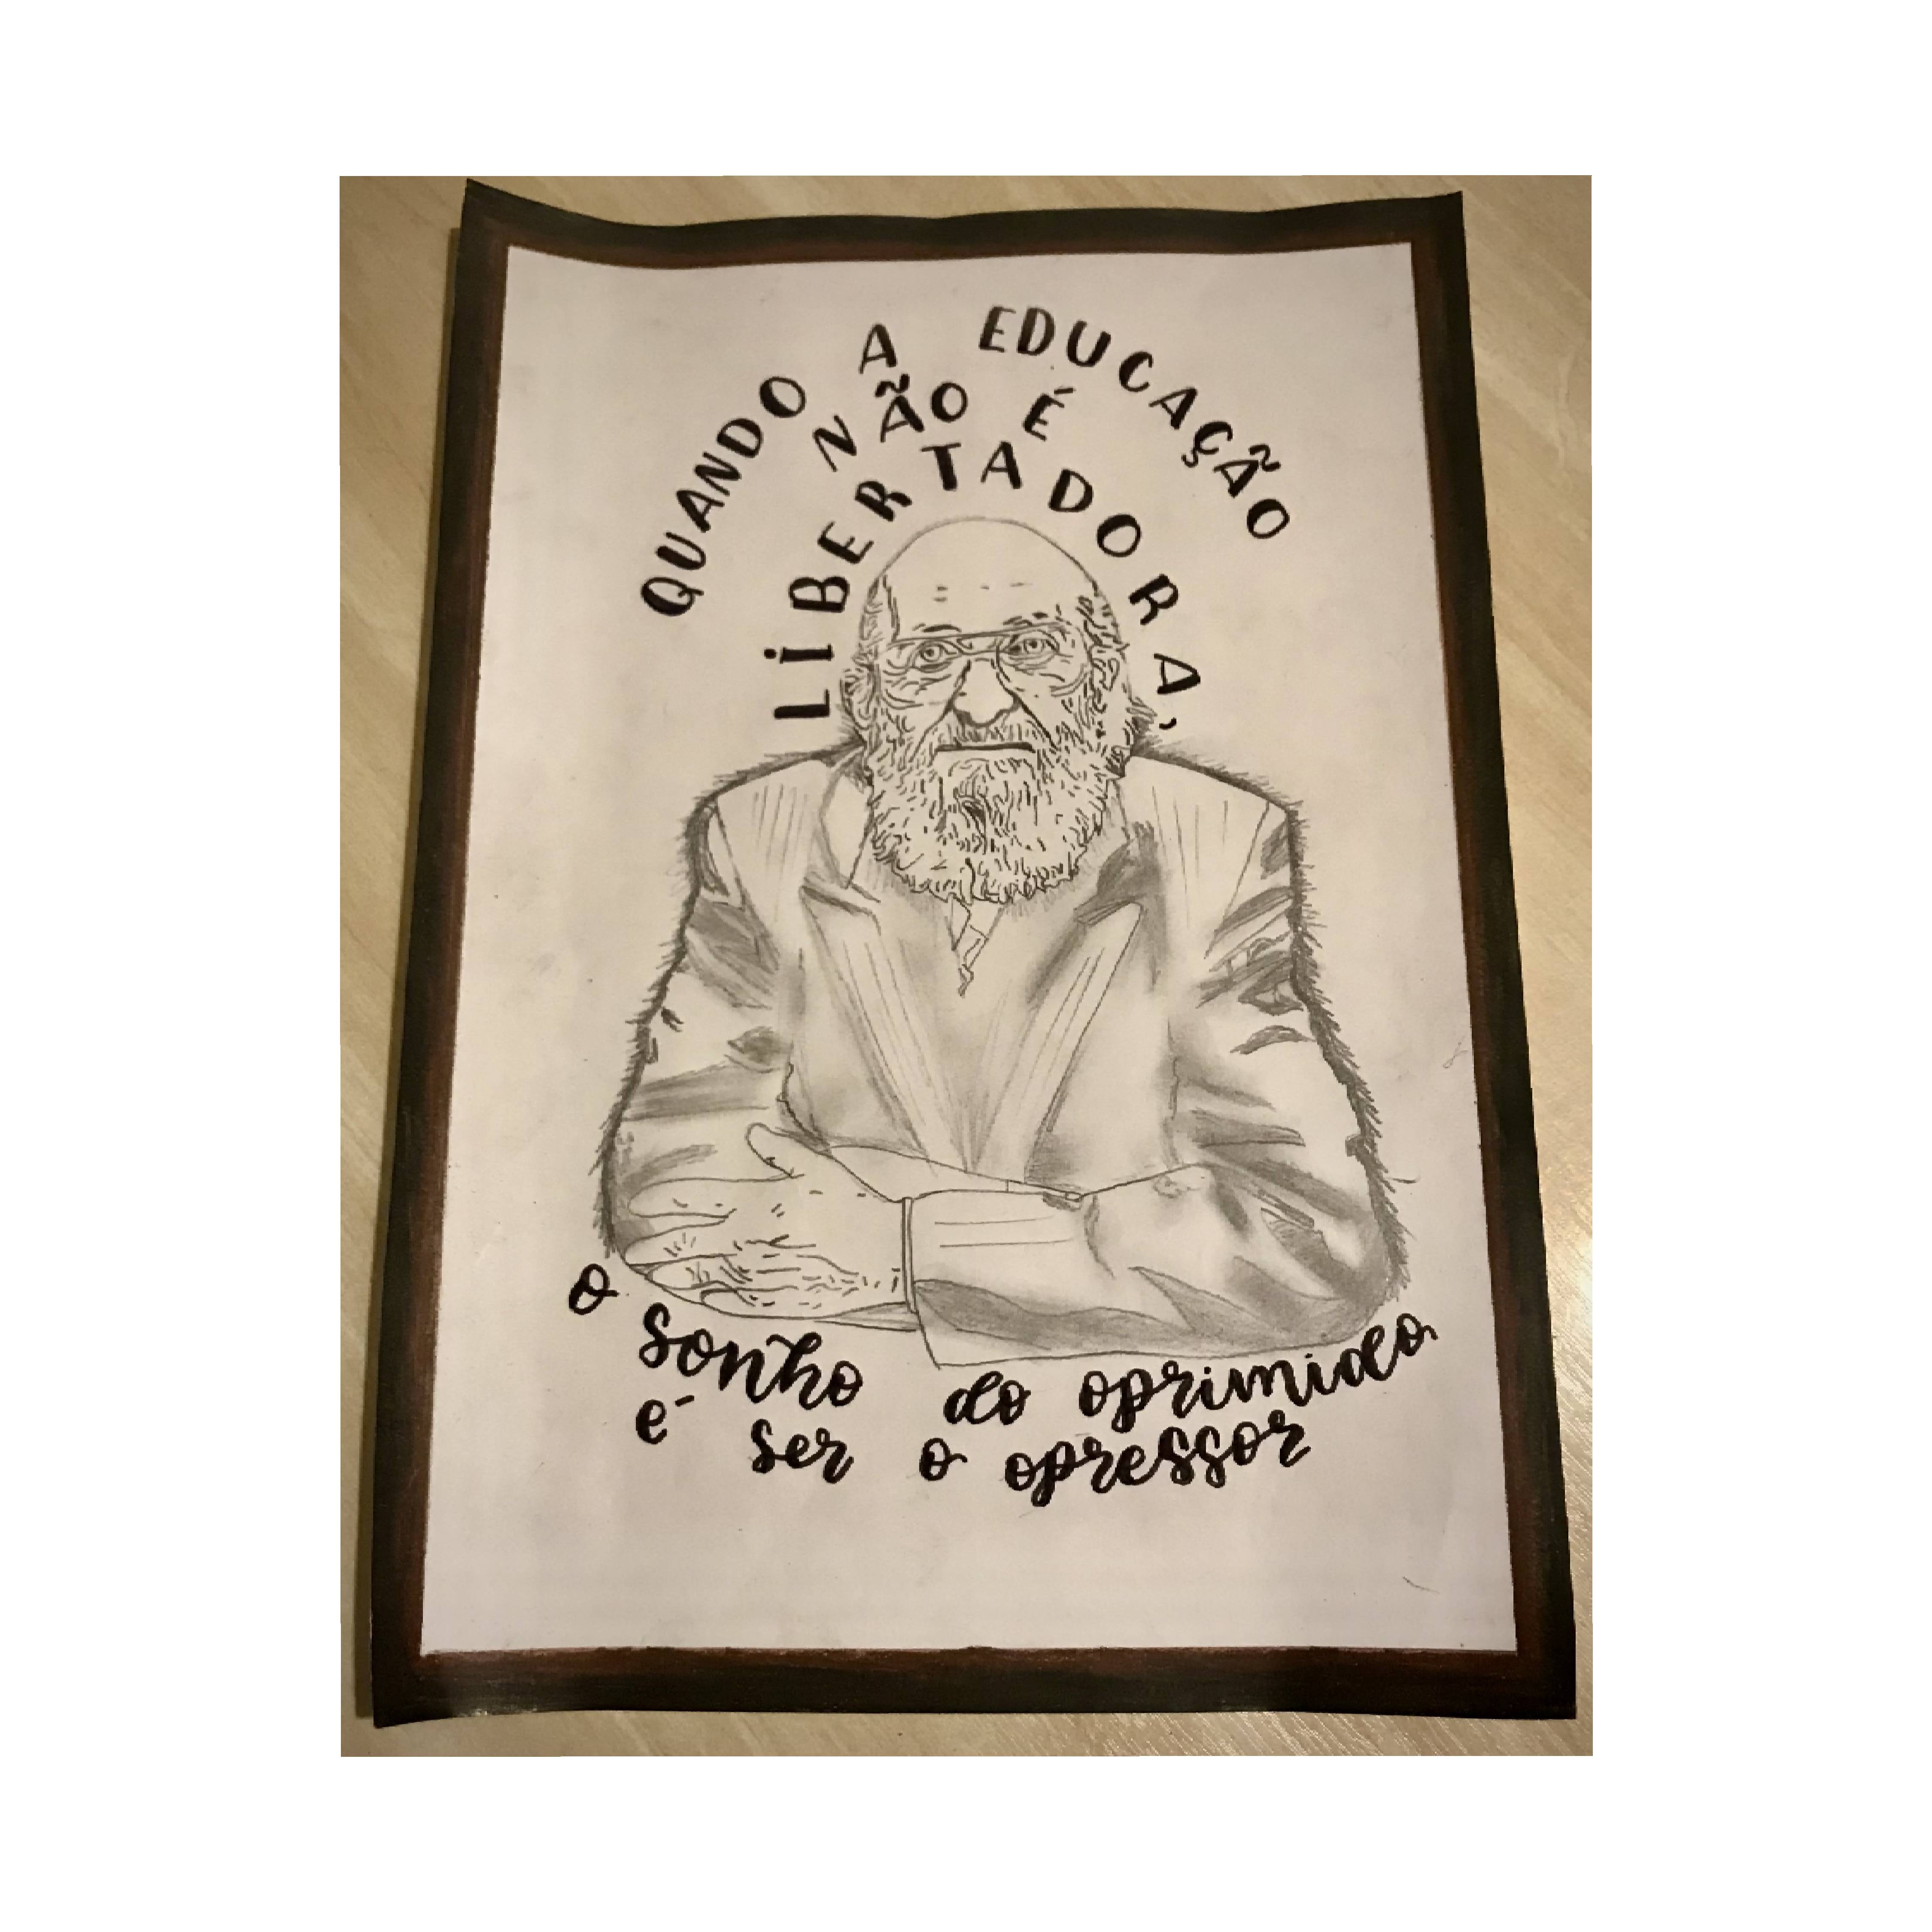 QUANDO A EDUCAÇÃO
NÃO É
LIBERTADORA,
o sonho do oprimido
é ser o opressor